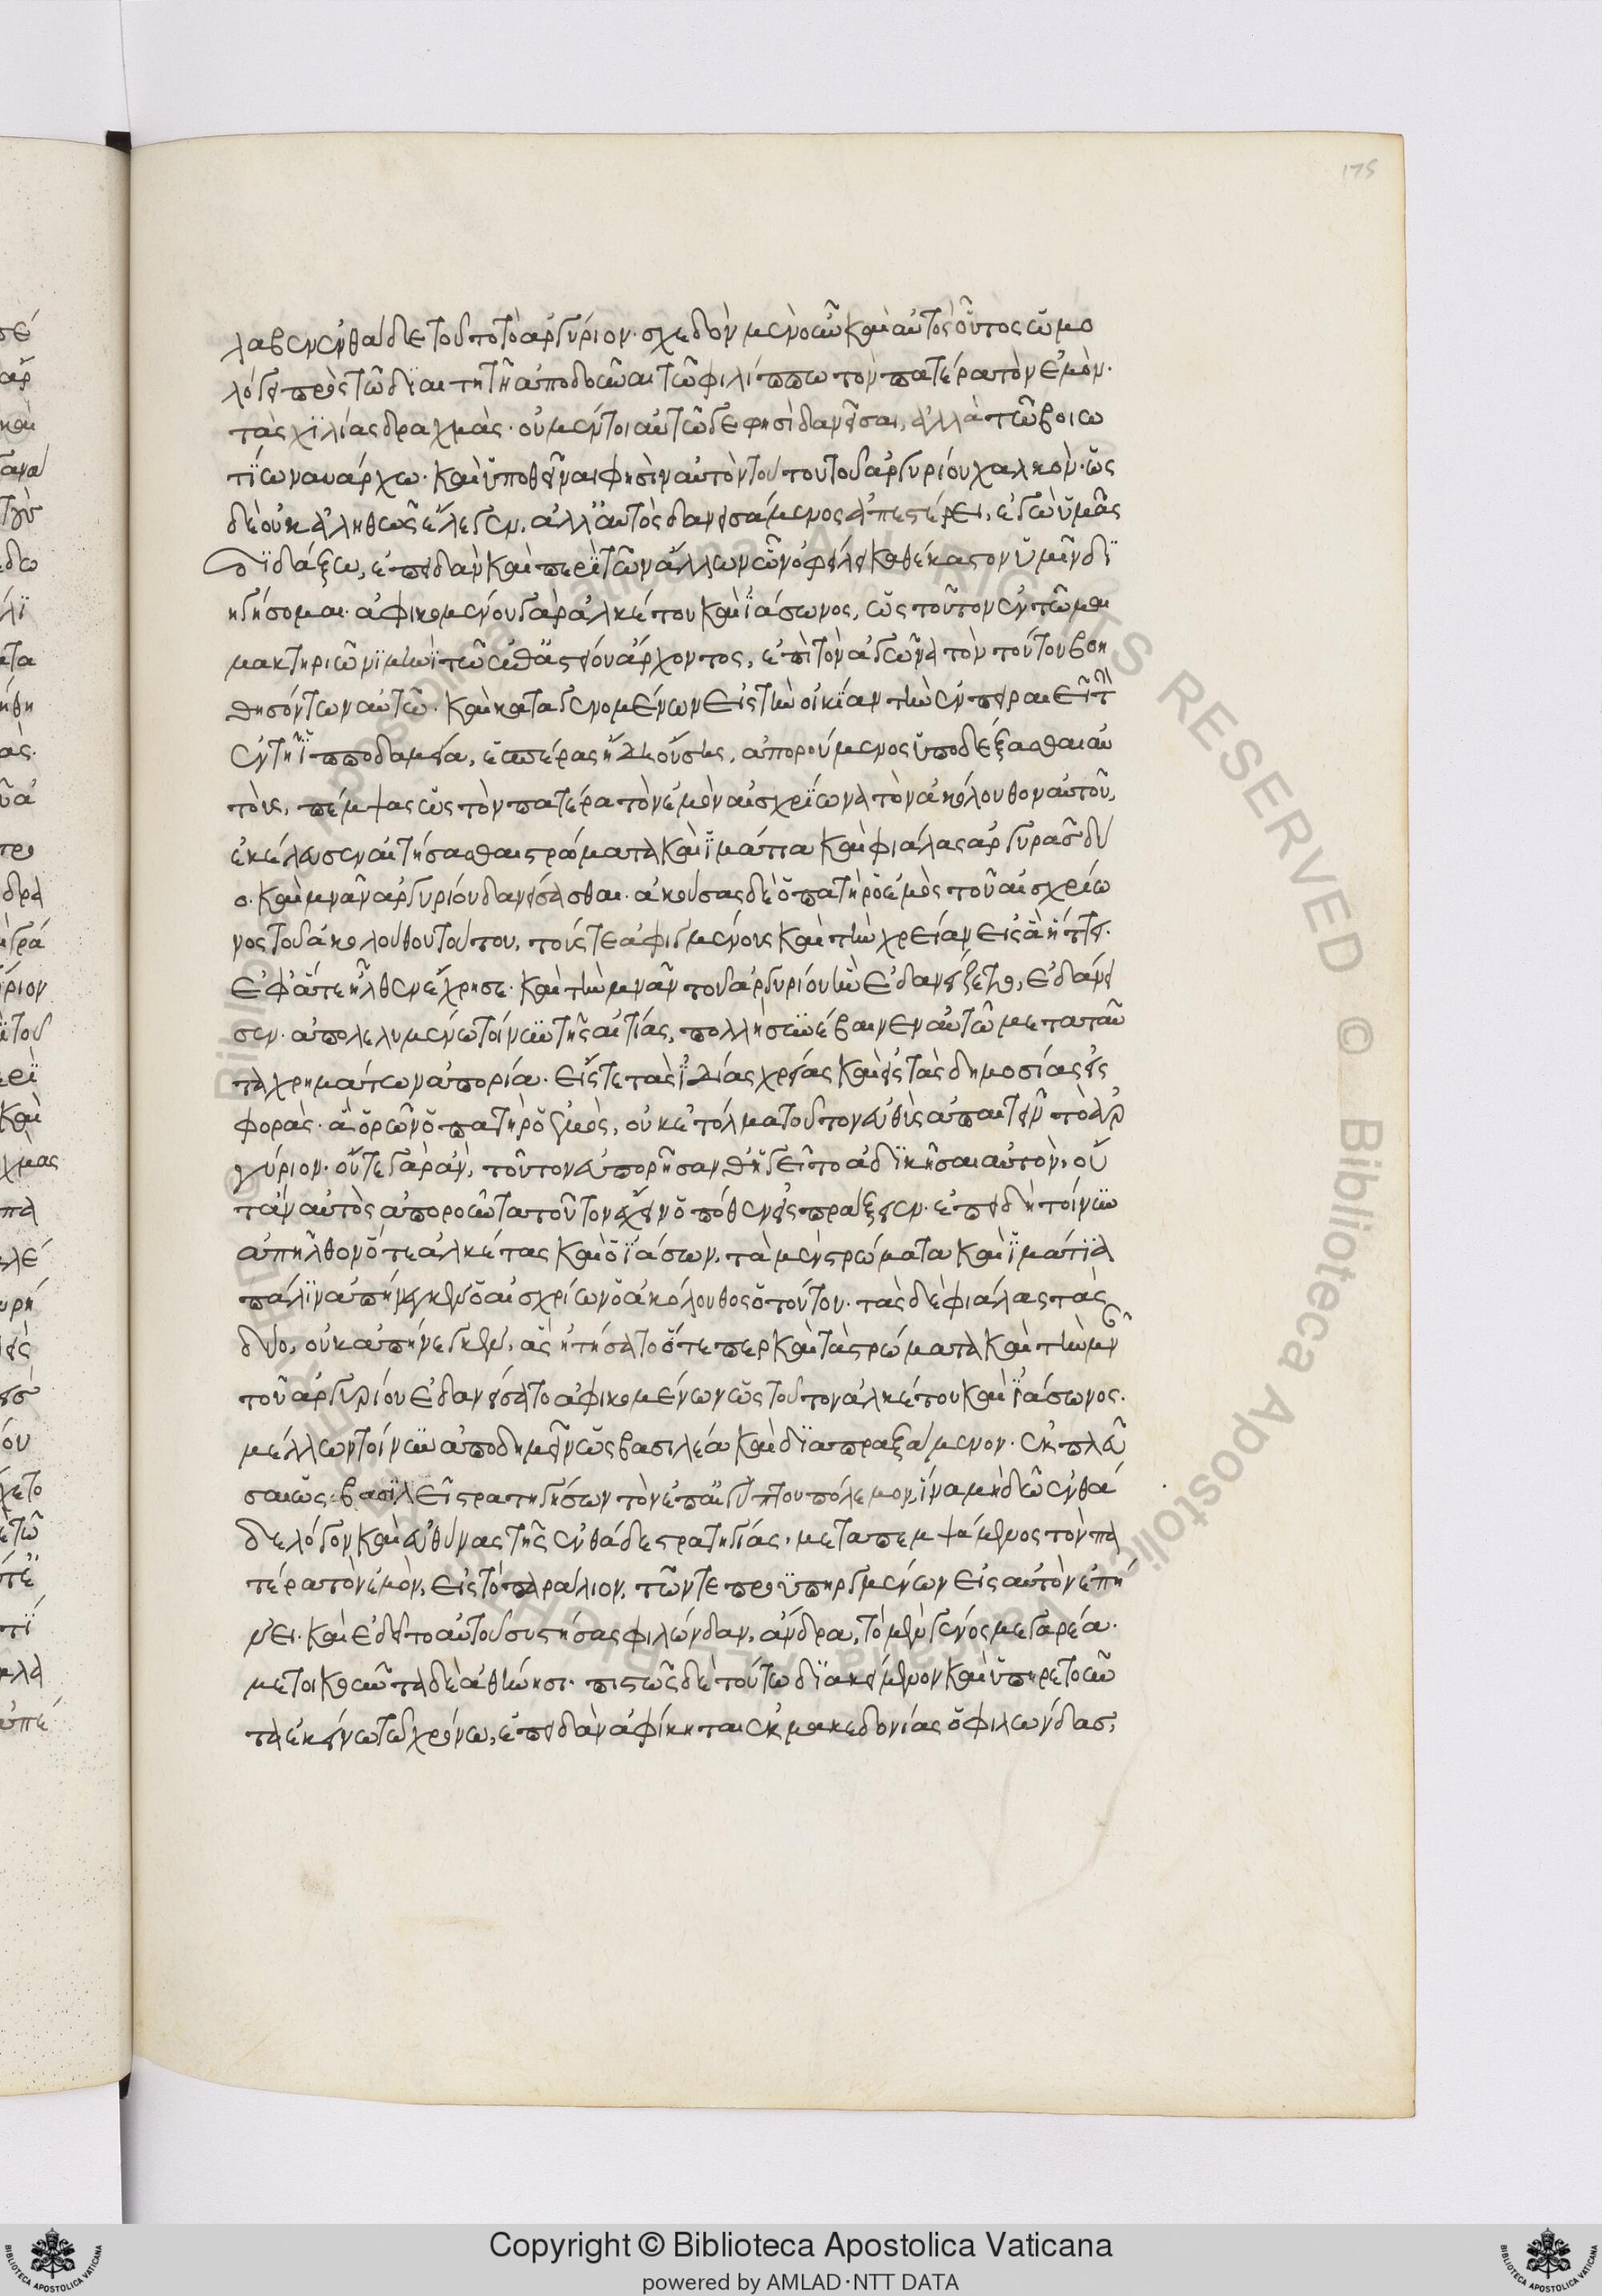 175
λαβεν ἐνθάδε τοῦτο τὸ ἀργύριον· σχεδὸν μὲν οὖν καὶ αὐτὸς οὗτος ὡμο
λόγει πρὸς τῶ διαιτητῆ ἀποδοῦναι τῶ φιλίππω τὸν πατέρα τὸν ἐμὸν·
τὰς χϊλίας δραχμὰς· οὐ μέντοι αὑτῶ γέ φησὶ δανεῖσαι, ἀλλὰ τῶ βοιω
τίω ναυάρχω· καὶ ὑποθεῖναι φησὶν αὐτὸν τούτου τοῦ ἀργυρίου χαλκόν· ὡς
δὲ οὐκ ἀληθῶς ἔλεγεν, ἀλλ' αὐτὸς δανεισάμενος ἀπεστέρει, ἐγὼ ὑμᾶς
διδάξω, ἐπειδὰν καὶ περὶ τῶν ἄλλων ὧν ὀφείλει καθέκαστον ὑμῖν δι
ηγήσομαι· ἀφικομένου γὰρ ἀλκέτου καὶ ἰάσωνος, ὡς τοῦτον ἐν τῶ μαι
μακτηριῶνι μηνὶ τῶ ἐπ' ἀστείου ἄρχοντος, ἐπὶ τὸν ἀγῶνα τὸν τούτου βοη
θησόντων αὐτῶ· καὶ καταγενομένων εἰς τὴν οἰκίαν τὴν ἐν πειραιεῖ τ
ἐν τῆ ἱπποδαμεία, ἑσπέρας ἤδη οὔσης, ἀπορούμενος ὑποδέξασθαι αὐ
τοὺς, πέμψας ὡς τὸν πατέρα τὸν ἐμὸν αἰσχρίωνα τὸν ἀκόλουθον αὐτοῦ,
ἐκέλευσεν αἰτήσασθαι στρώματα καὶ ἱμάτια καὶ φιάλας ἀργυρᾶς δύ
ο· καὶ μνᾶν ἀργυρίου δανείσασθαι· ἀκούσας δὲ ὁ πατὴρ ὁ ἐμὸς τοῦ αἰσχρίω
νος τοῦ ἀκολούθου τούτου, τούς τε ἀφιγμένους καὶ τὴν χρείαν εἰς ἃ ἠτεῖτο·
ἐφ' ἅ τε ἦλθεν ἔχρησε· καὶ τὴν μνᾶν τοῦ ἀργυρίου ἣν ἐδανείζετο, ἐδάνει
σεν· ἀπολελυμένω τοίνυν τῆς αἰτίας, πολλὴ συνέβαινεν αὐτῶ μετὰ ταῦ
τα χρημάτων ἀπορία· εἴς τε τὰς ἰδίας χρείας καὶ εἰς τὰς δημοσίας εἰς
φορὰς· ἃ ὁρῶν ὁ πατὴρ ὁ ἐμὸς, οὐκ ἐτόλμα τοῦτον εὐθὺς ἀπαιτεῖν τὸ ἀρ
γύριον· οὔτε γὰρ ἂν, τοῦτον εὐπορήσανθ' ἡγεῖτο ἀδικῆσαι αὐτὸν, οὔ
τ' ἂν αὐτὸς ἀποροῦντα τοῦτον ἔχειν ὁπόθεν εἰσπράξειεν· ἐπειδὴ τοίνυν
ἀπῆλθον ὅ τε ἀλκέτας καὶ ὁ ἰάσων, τὰ μὲν στρώματα καὶ ἱμάτια
πάλιν ἀπήνεγκεν ὁ αἰσχρίων ὁ ἀκόλουθος ὁ τούτου· τὰς δὲ φιάλας τὰς
δύο, οὐκ ἀπήνεγκεν, ἃς ἠτήσατο ὅτε περ καὶ τὰ στρώματα καὶ τὴν μν
τοῦ ἀργυρίου ἐδανείσατο ἀφικομένων ὡς τοῦτον ἀλκέτου καὶ ἰάσωνος·
μέλλων τοίνυν ἀποδημεῖν ὡς βασιλέα καὶ διαπραξάμενον· ἐκπλεῦ
σαι ὡς βασιλεῖ στρατηγήσων τὸν ἐπ' αἴγυπτον πόλεμον, ἵνα μὴ δῶ ἐνθά
δε λόγον καὶ εὐθύνας τῆς ἐνθάδε στρατηγίας, μεταπεμψάμενος τὸν πα
τέρα τὸν ἐμὸν, εἰς τὸ παράλιον, τῶν τε προϋπηργμένων εἰς αὐτὸν ἐπή
νει· καὶ ἐδεῖτο αὐτοῦ συστήσας φιλώνδαν, ἄνδρα, τὸ μὲν γένος μεγαρέα·
μετοικοῦντα δὲ ἀθήνησι· πιστῶς δὲ τούτω διακείμενον καὶ ὑπηρετοῦν
τα ἐκείνω τῶ χρόνω, ἐπειδὰν ἀφίκηται ἐκ μακεδονίας ὁ φιλώνδας,
© Biblioteca Apostolica Vaticana ALL RIGHTS RESERVED
Copyright © Biblioteca Apostolica Vaticana
powered by AMLAD·NTT DATA
BIBLIOTECA APOSTOLICA VATICANA
BIBLIOTECA APOSTOLICA VATICANA